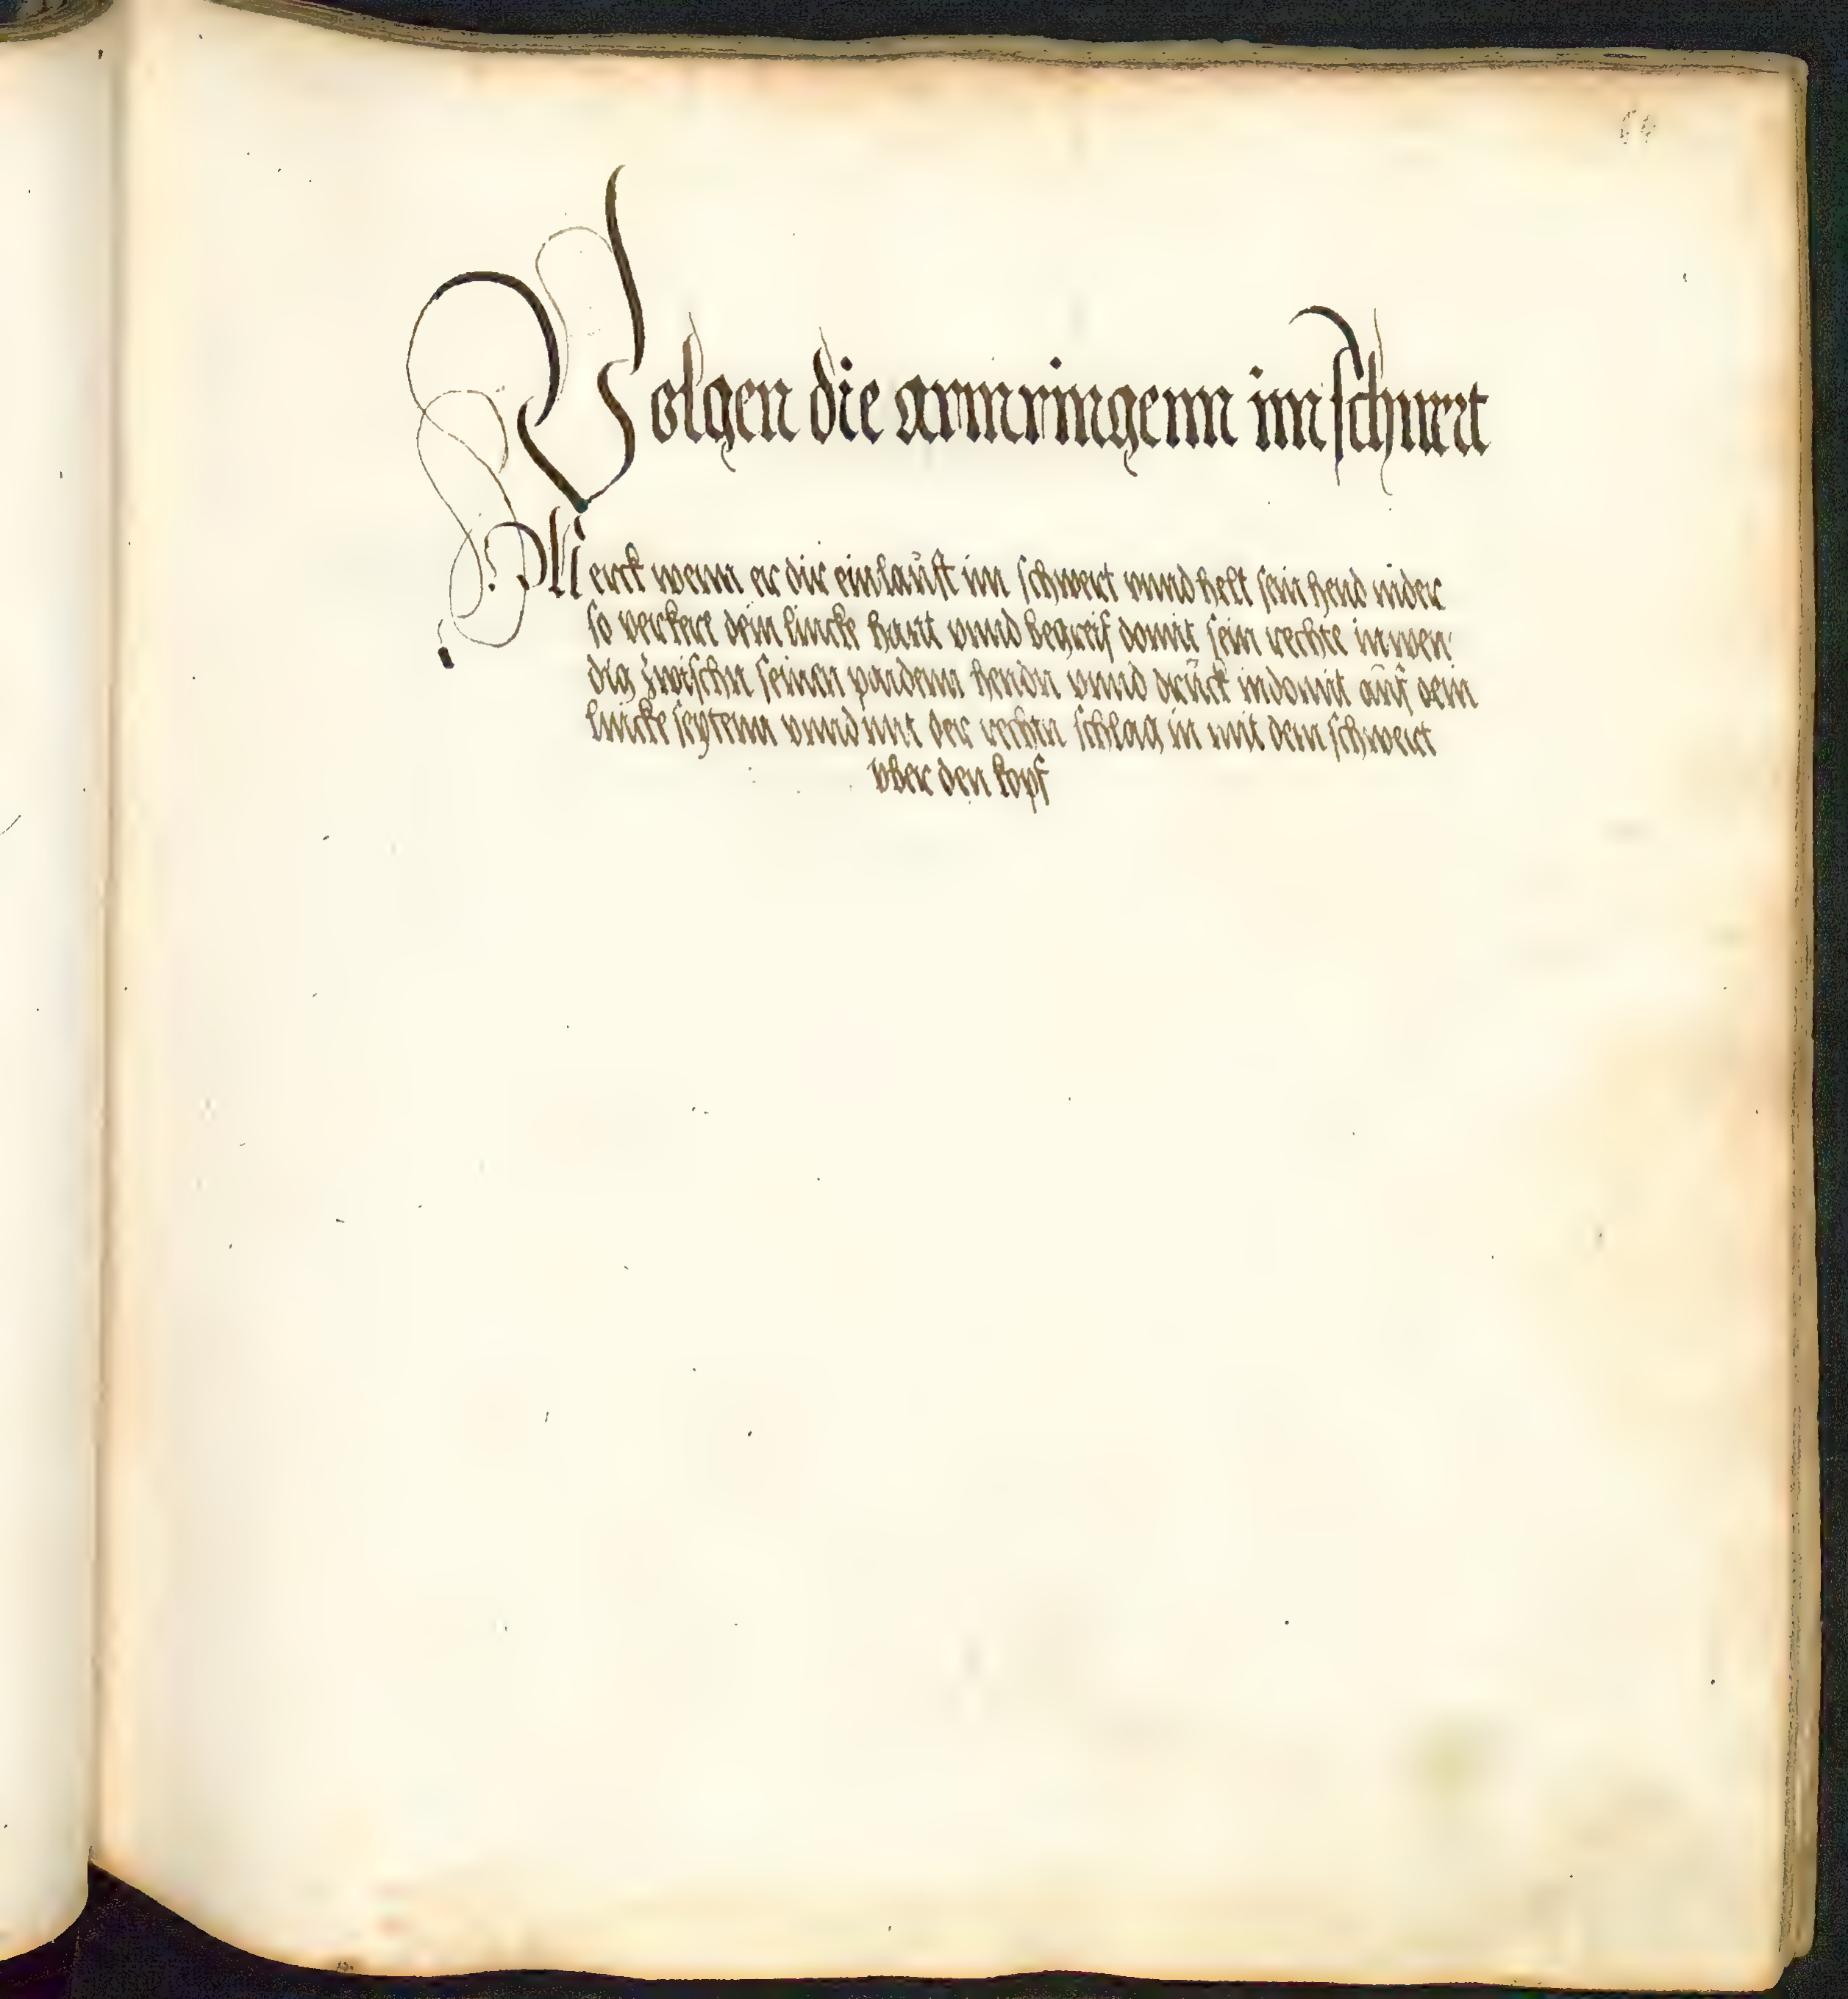 Volgen die armringenn im schwert
Merck wenn er dir einlaüft im schwert vnnd helt sein hend nider
so verkere dein lincke hant vnnd begreif domit sein rechte inwen
dig zwischn seinen paidenn hendn vnnd drück in domit aüf dein
lincke seytenn vnnd mit der rechtn schlag in mit dem schwert
vber den kopf